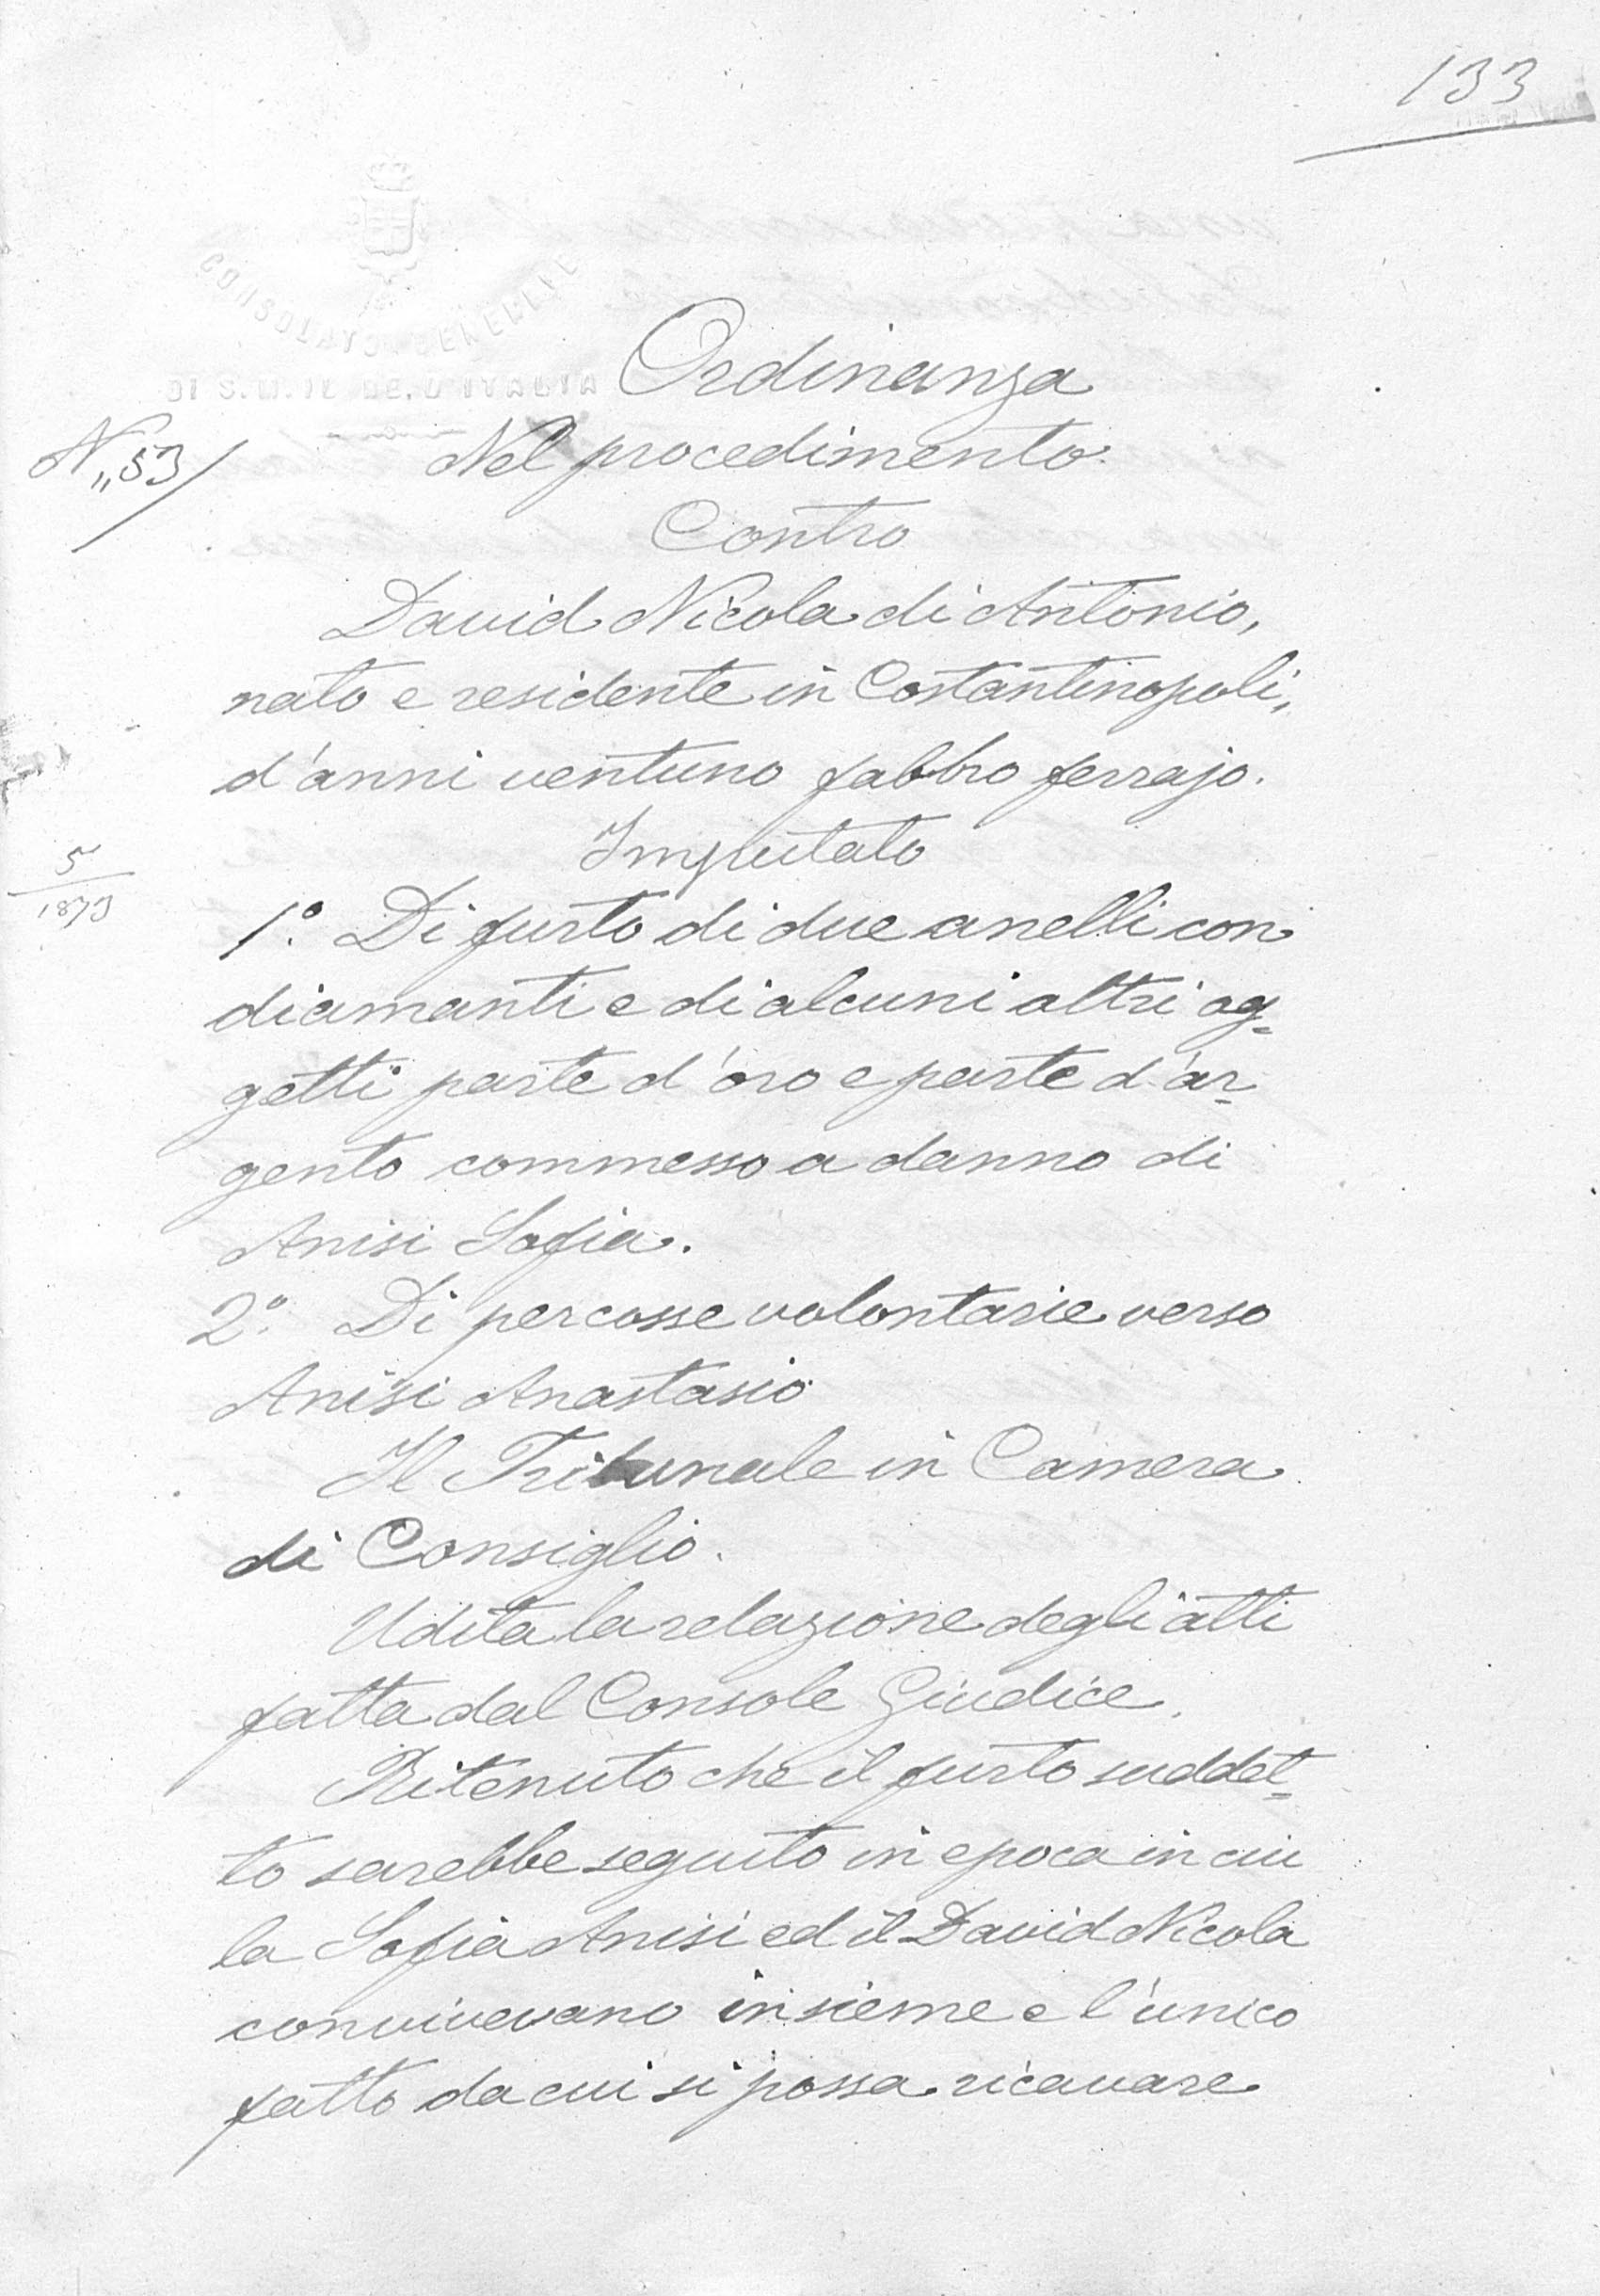 133
CONSOLATO GENERALE
DI S. M. IL RE. D'ITALIA
Ordinanza
N„53/
Nel procedimento
Contro
David Nicola di Antonio,
nato e residente in Costantinopoli,
d'anni ventuno fabbro ferrajo.
Imputato
5
1873
1º. Di furto di due anelli con
diamanti e di alcuni altri og=
getti parte d'oro e parte d'ar=
gento commesso a danno di
Anisi Sofia.
2º. Di percosse volontarie verso
Anisi Anastasio
Il Tribunale in Camera
di Consiglio.
Udita la relazione degli atti
fatta dal Console Giudice.
Ritenuto che il furto suddet=
to sarebbe seguito in epoca in cui
la Sofia Anisi ed il David Nicola
convivevano insieme e l'unico
fatto da cui si possa ricavare